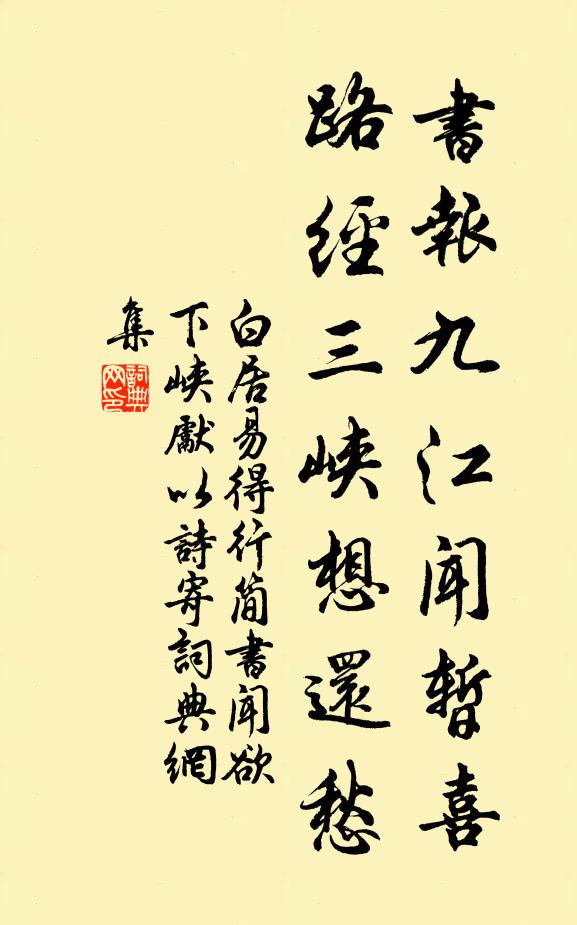 書報九江聞暫喜
路經三峽想還愁
白居易得行簡書聞欲
下峽獻以詩寄詞典網
集
詞典网印